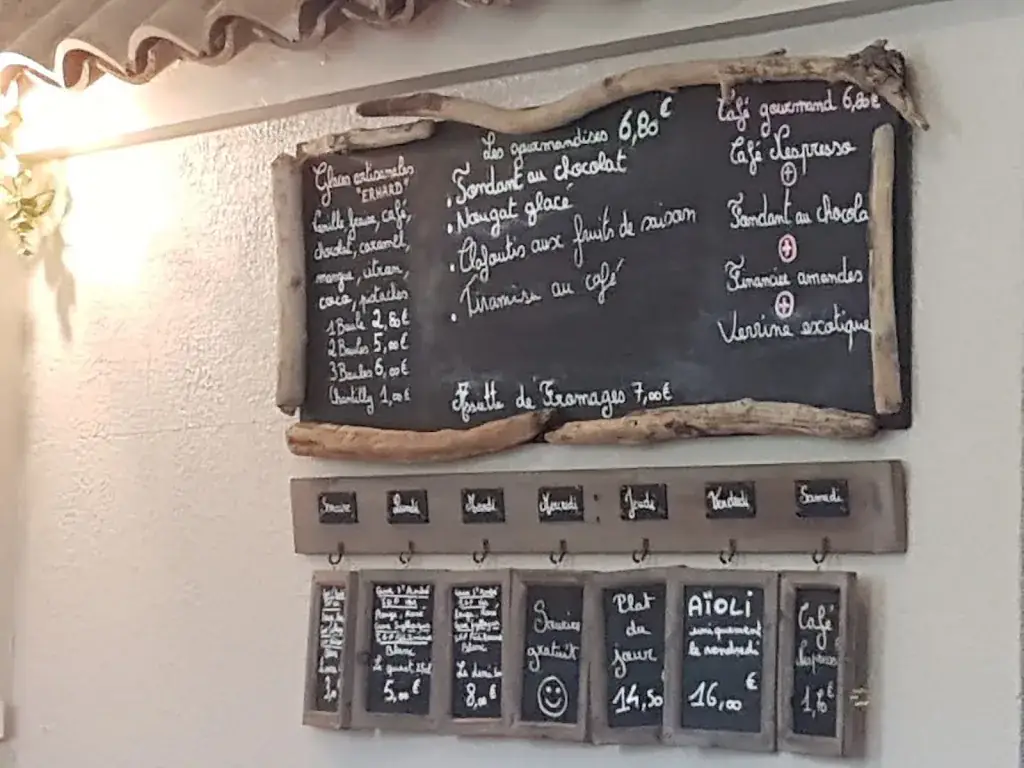 Glaces artisanales
"ERHARD"
Vanille, fraise, café,
chocolat, caramel,
mangue, citron,
coco, pistaches
1 Boule 2,80€
2 Boules 5,00€
3 Boules 6,00€
Chantilly 1,00€
Les gourmandises 6,80€
. Fondant au chocolat
. Nougat glacé
. Clafoutis aux fruits de saison
. Tiramisu au café
Assiette de Fromages 7,00€
Café gourmand 6,80€
Café Nespresso
+
Fondant au chocola
+
Financier amandes
+
Verrine exotique
Semaine
Lundi
Mardi
Mercredi
Jeudi
Vendredi
Samedi
Rouge, Rosé
Blanc
Le quart 25cl
5,00€
Rouge, Rosé
Blanc
8,00€
Sourire
gratuit
Plat
du
jour
14,50
AÏOLI
uniquement
le vendredi
16,00€
Café
Nespresso
1,80€